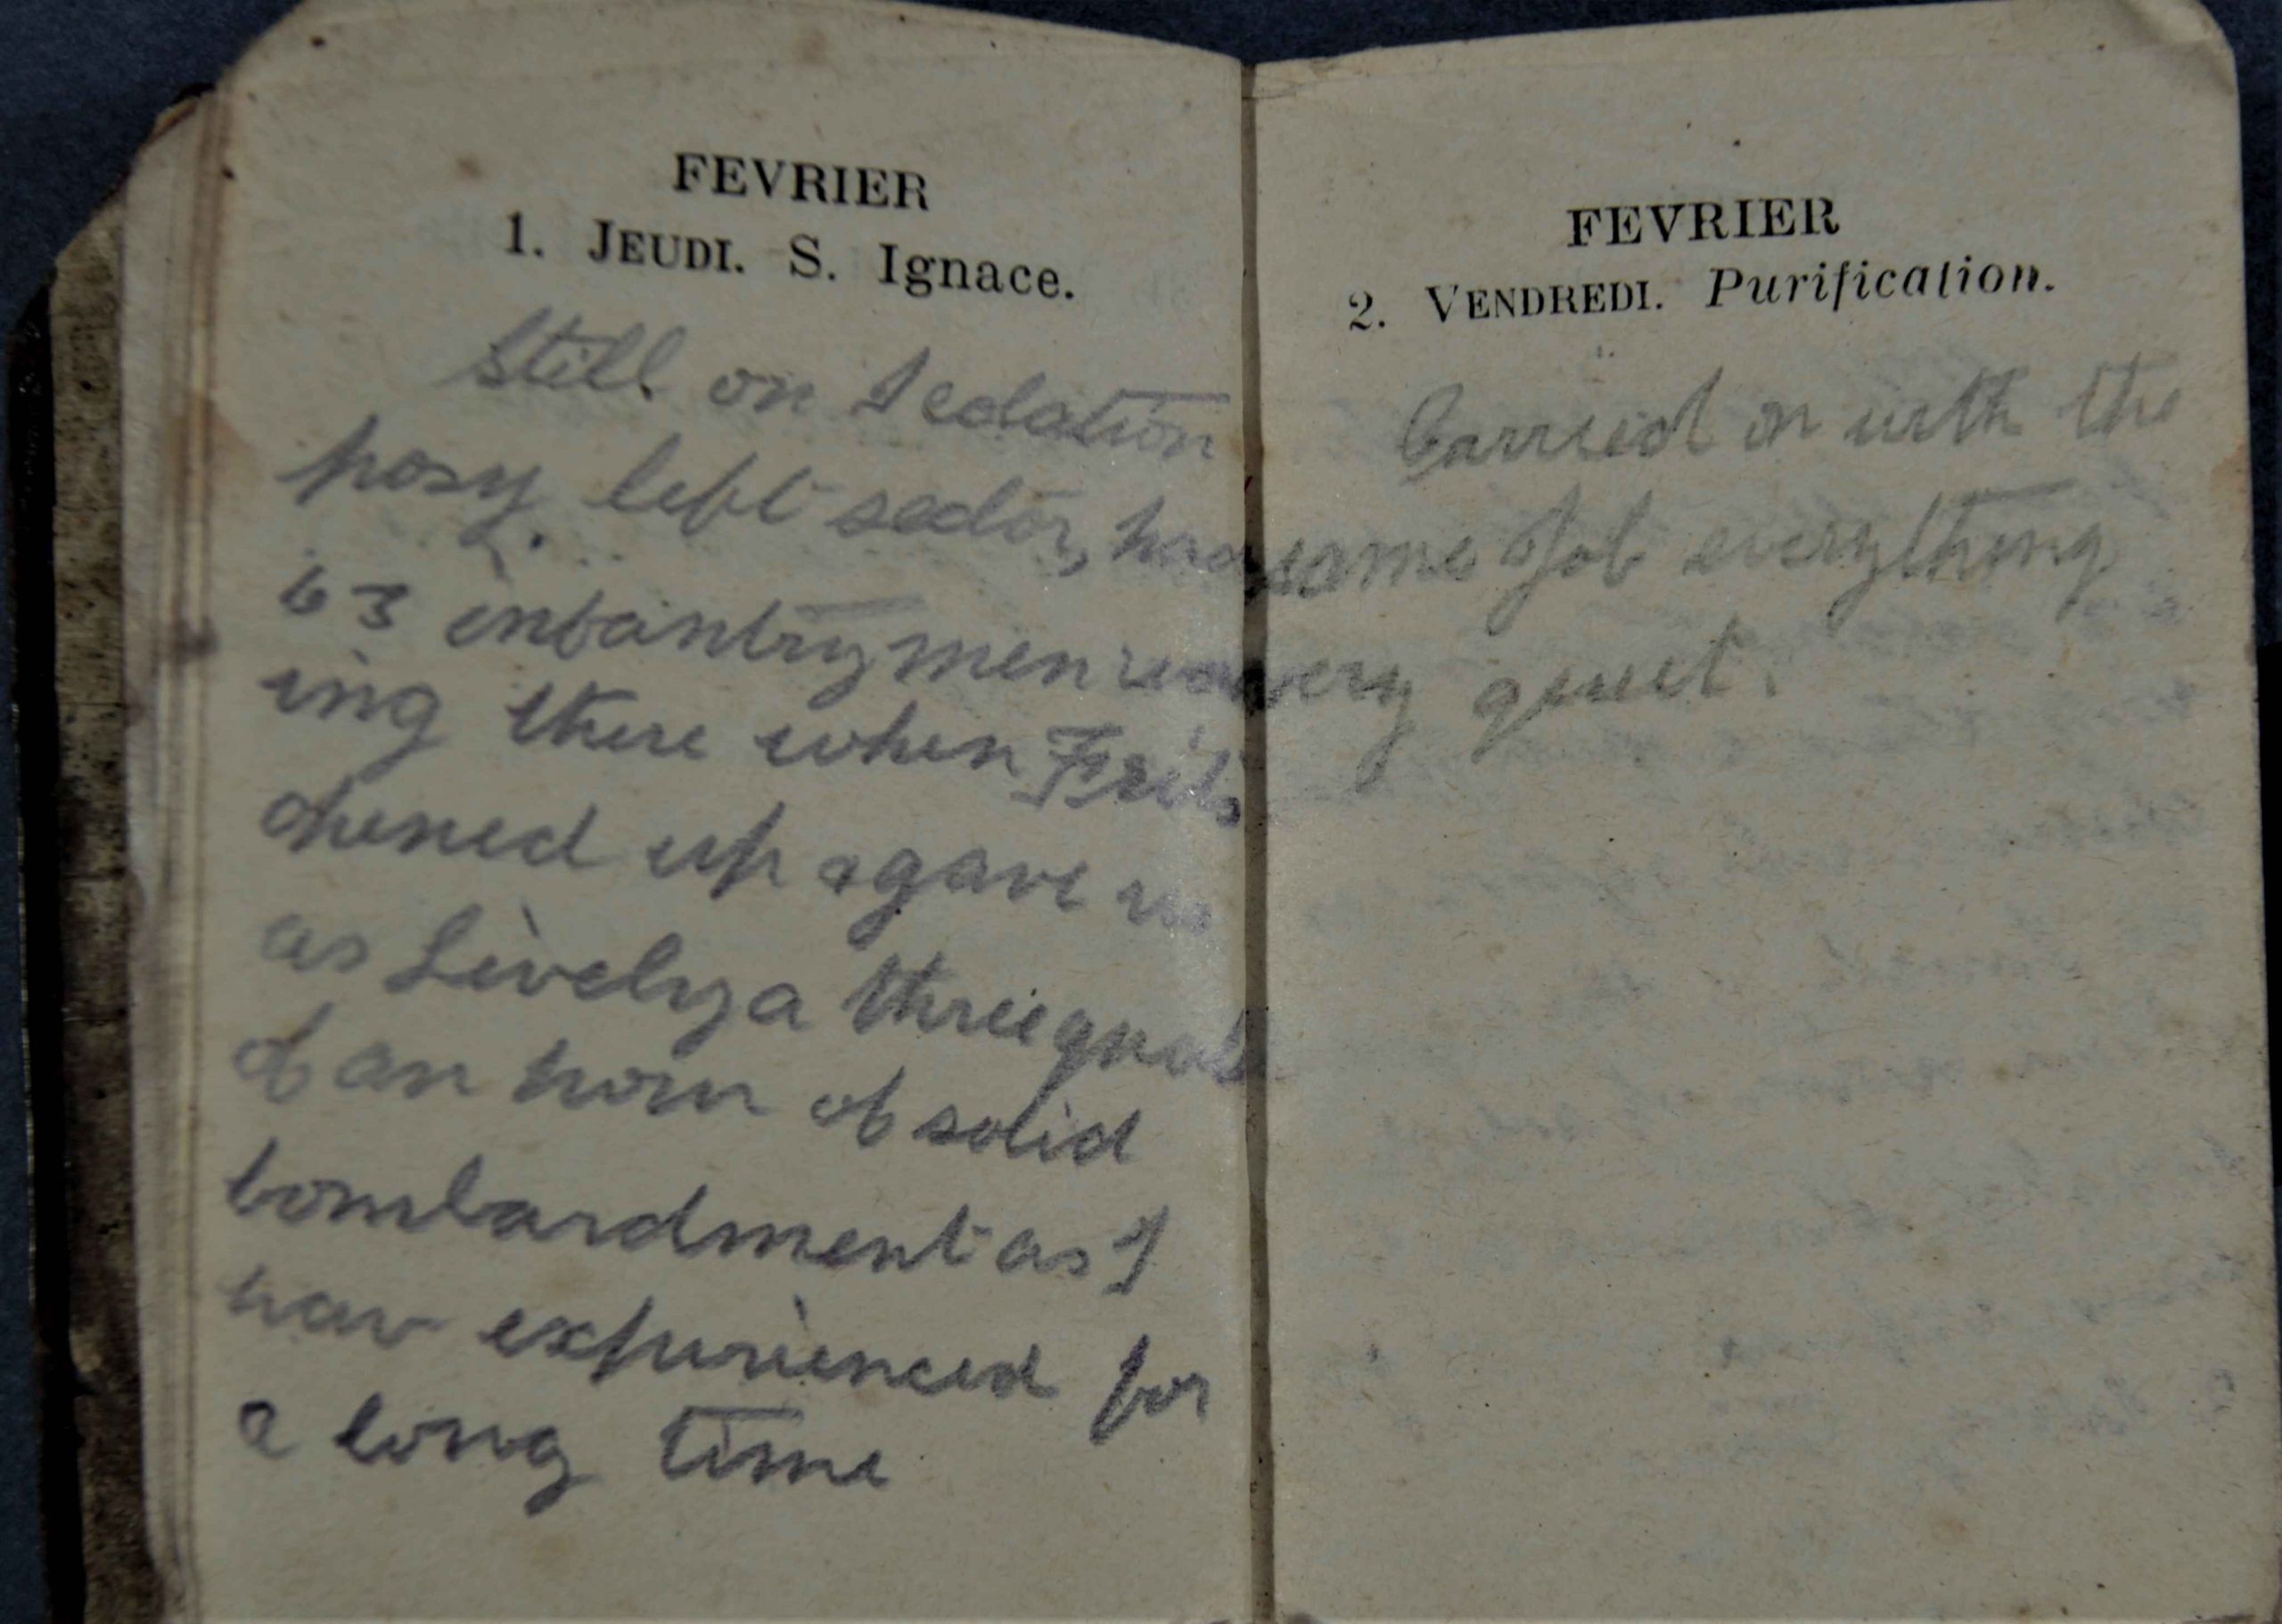 FEVRIER
1. JEUDI. S. Ignace.
Still on
posy. left sector, had
63 infantry men
ing there when Fritz
opened up & gave us
as Lively a three quat
of an hour of solid
bombardment as I
hav experienced for
a long time
FEVRIER
2. VENDREDI. Purification.
Carried on with the
same Job everything
very quiet.